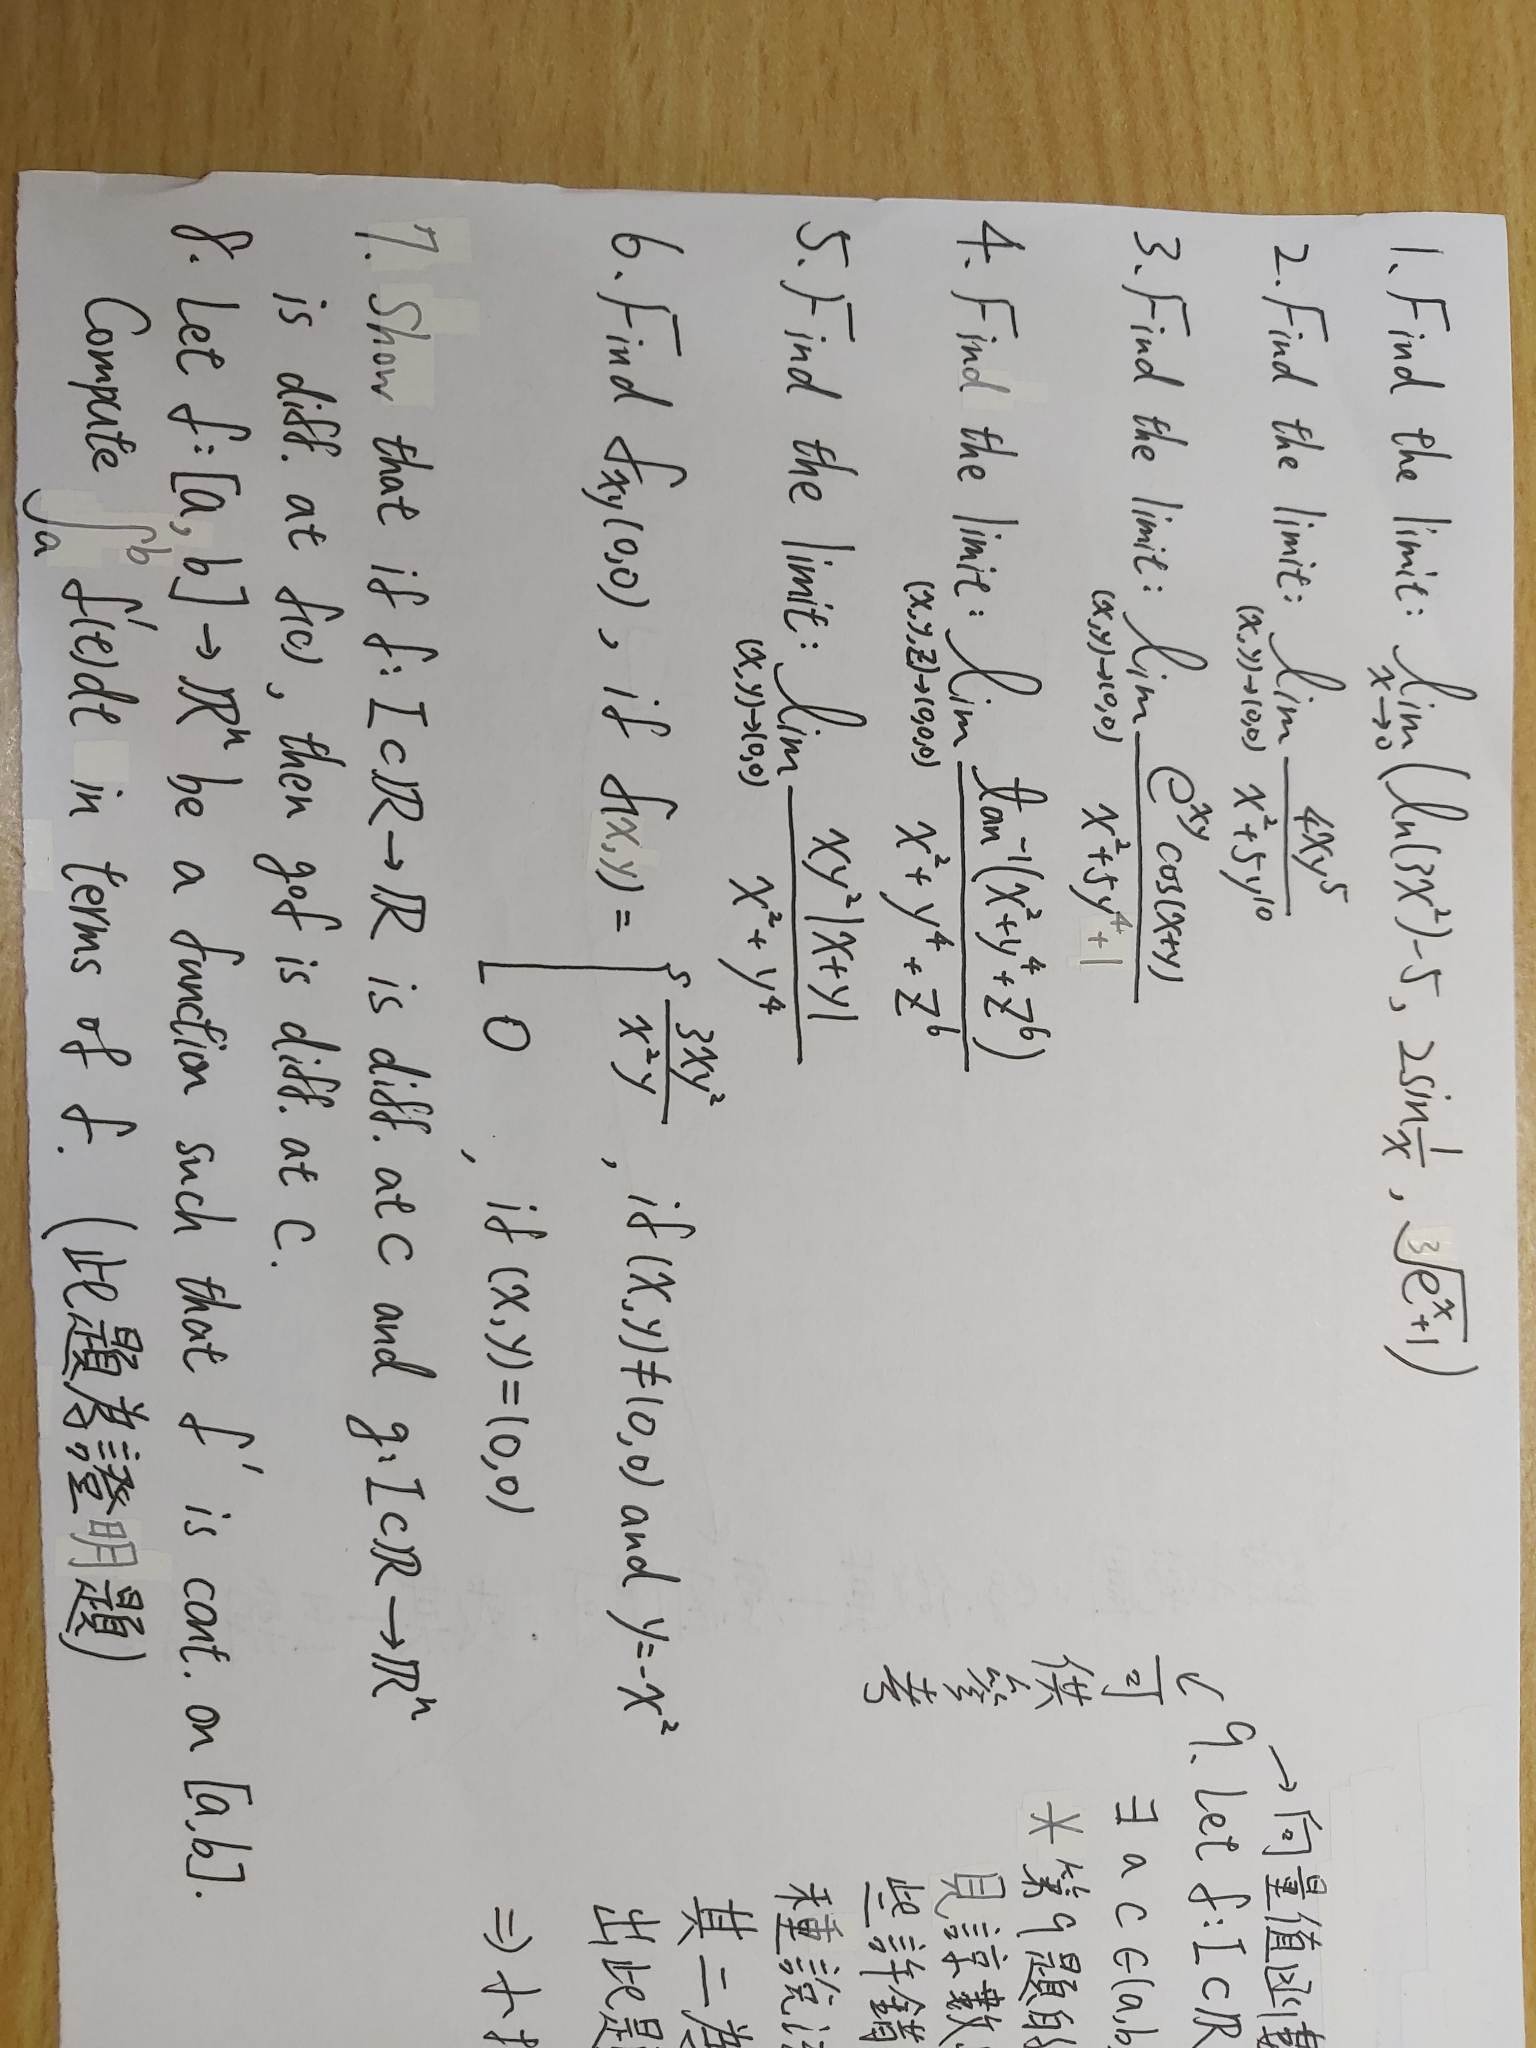 1. Find the limit: lim_{x→0} (ln(3x²)-5, 2sin 1/x, ³√(e^x+1))
2. Find the limit: lim_{(x,y)→(0,0)} 4xy⁵/(x²+5y¹⁰)
3. Find the limit: lim_{(x,y)→(0,0)} e^{xy} cos(x+y)/(x²+5y⁴+1)
4. Find the limit: lim_{(x,y,z)→(0,0,0)} tan⁻¹(x²+y⁴+z⁶)/(x²+y⁴+z⁶)
5. Find the limit: lim_{(x,y)→(0,0)} xy²|x+y|/(x²+y⁴)
6. Find f_{xy}(0,0), if f(x,y) = { 3xy²/(x²y), if (x,y)≠(0,0) and y=-x²
0, if (x,y)=(0,0)
7. Show that if f: I⊂ℝ→ℝ is diff. at c and g: I⊂ℝ→ℝⁿ
is diff. at f(c), then g∘f is diff. at c.
8. Let f: [a, b]→ℝⁿ be a function such that f' is cont. on [a,b].
Compute ∫_a^b f'(t)dt in terms of f. (此題為證明題)
→向量值函數
↙ 9. Let f: I⊂ℝ
可供參考
∃ a c ∈(a,b
*第9題的
見諒數
些許錯
種說法
其二為
出此題
⇒